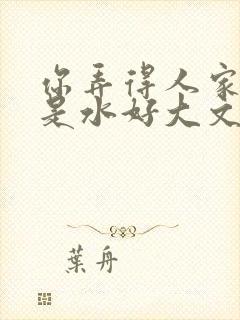 你弄得人家
是水好大文
葉舟